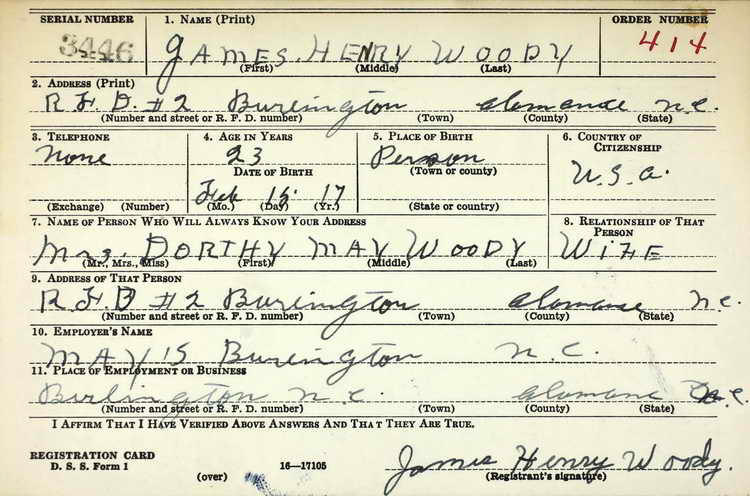 SERIAL NUMBER 1. NAME (Print) ORDER NUMBER
3446 JAMES. HENRY WOODY 414
(First) (Middle) (Last)
2. ADDRESS (Print)
R.F.D. #2 Burlington Alamance N.C.
(Number and street or R. F. D. number) (Town) (County) (State)
3. TELEPHONE 4. AGE IN YEARS 5. PLACE OF BIRTH 6. COUNTRY OF CITIZENSHIP
None 23 Person U.S.A.
DATE OF BIRTH (Town or county)
Feb 15 17
(Exchange) (Number) (Mo.) (Day) (Yr.) (State or country)
7. NAME OF PERSON WHO WILL ALWAYS KNOW YOUR ADDRESS 8. RELATIONSHIP OF THAT PERSON
Mrs. DORTHY MAY WOODY WIFE
(Mr., Mrs., Miss) (First) (Middle) (Last)
9. ADDRESS OF THAT PERSON
R.F.D #2 Burlington Alamance N.C.
(Number and street or R. F. D. number) (Town) (County) (State)
10. EMPLOYER'S NAME
MAY'S Burlington N.C.
11. PLACE OF EMPLOYMENT OR BUSINESS
Burlington N.C. Alamance N.C.
(Number and street or R. F. D. number) (Town) (County) (State)
I AFFIRM THAT I HAVE VERIFIED ABOVE ANSWERS AND THAT THEY ARE TRUE.
REGISTRATION CARD
D. S. S. Form 1 James Henry Woody.
(over) 16—17105 (Registrant's signature)